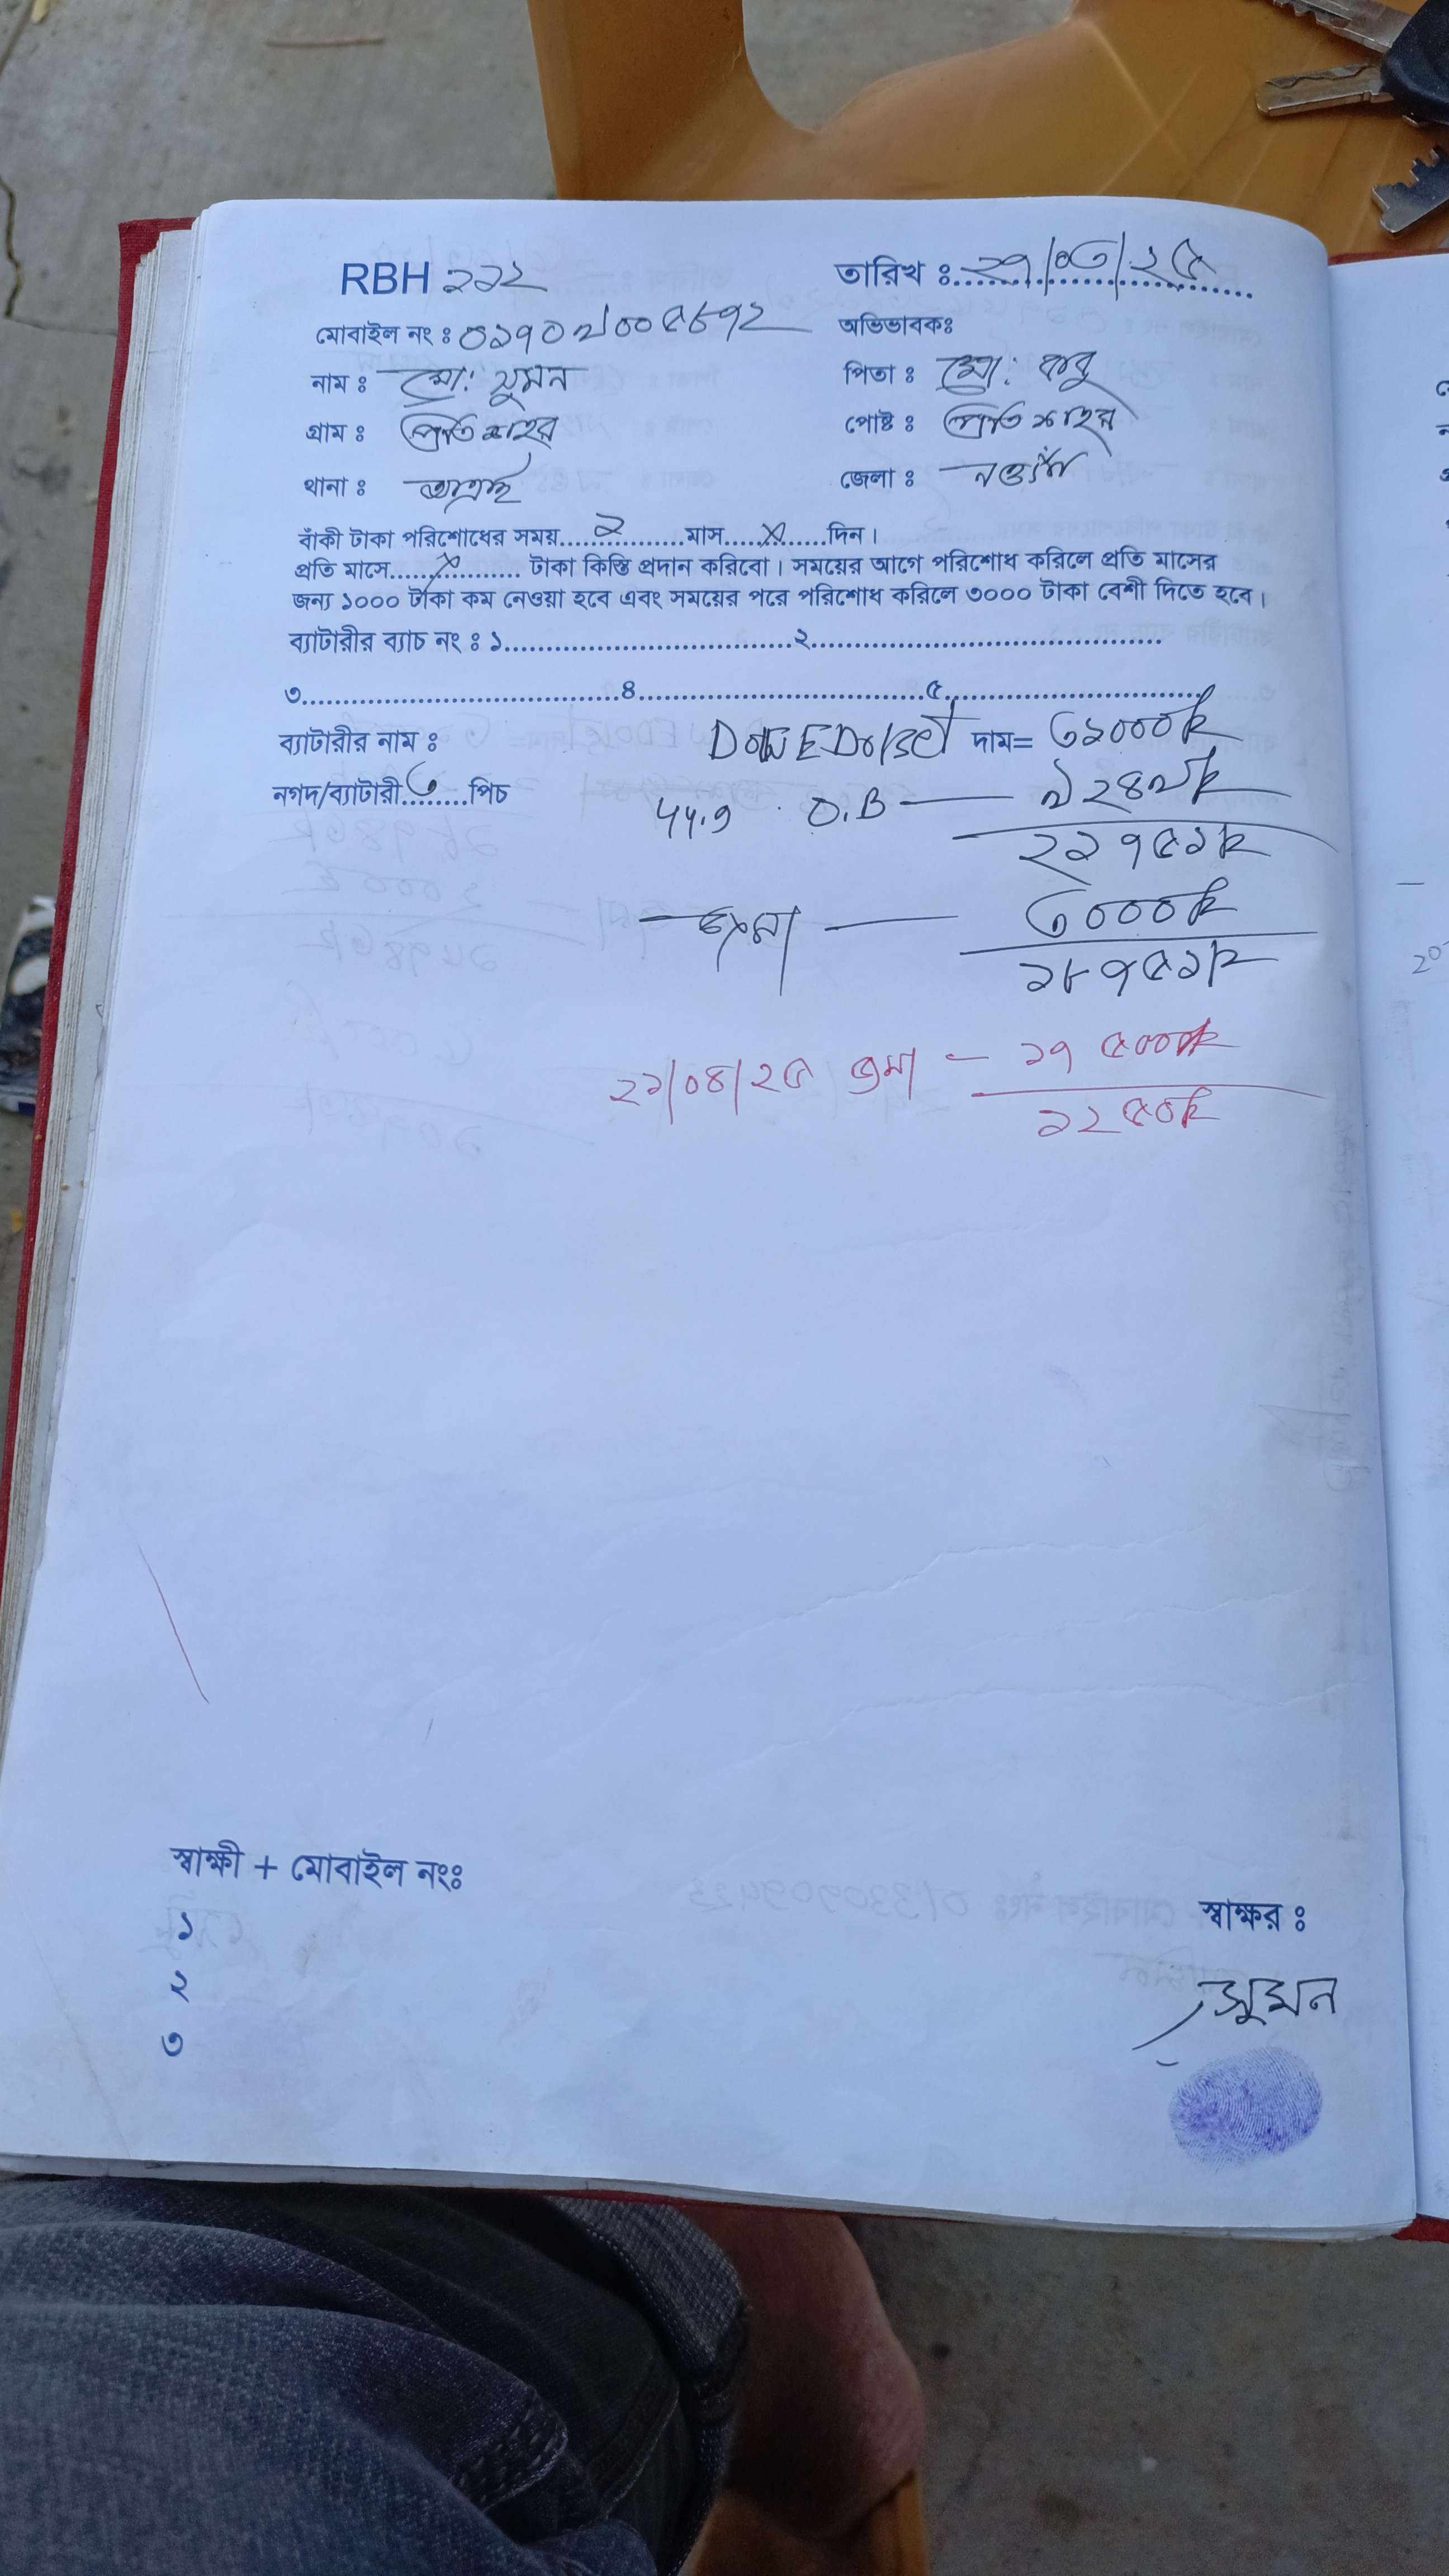 RBH ২১২ তারিখ ঃ ২৭/০৩/২৫
মোবাইল নং ঃ ০১৭০৯০০৫৮৭২ অভিভাবকঃ
নাম ঃ মো: সুমন পিতা ঃ মো: বাবু
গ্রাম ঃ পোষ্ট ঃ
থানা ঃ আত্রাই জেলা ঃ নওগাঁ
বাঁকী টাকা পরিশোধের সময়.....২.....মাস.....x.....দিন।
প্রতি মাসে.....x..... টাকা কিস্তি প্রদান করিবো। সময়ের আগে পরিশোধ করিলে প্রতি মাসের
জন্য ১০০০ টাকা কম নেওয়া হবে এবং সময়ের পরে পরিশোধ করিলে ৩০০০ টাকা বেশী দিতে হবে।
ব্যাটারীর ব্যাচ নং ঃ ১..........২..........
৩..........৪..........৫..........
ব্যাটারীর নাম ঃ দাম= ৩১০০০
নগদ/ব্যাটারী...৩...পিচ
O.B — ৯২৪৯
২১৭৫১
জমা — ৩০০০
১৮৭৫১
২১/০৪/২৫ জমা - ১৭৫০০
১২৫০
স্বাক্ষী + মোবাইল নংঃ
স্বাক্ষর ঃ
১
২
৩
সুমন